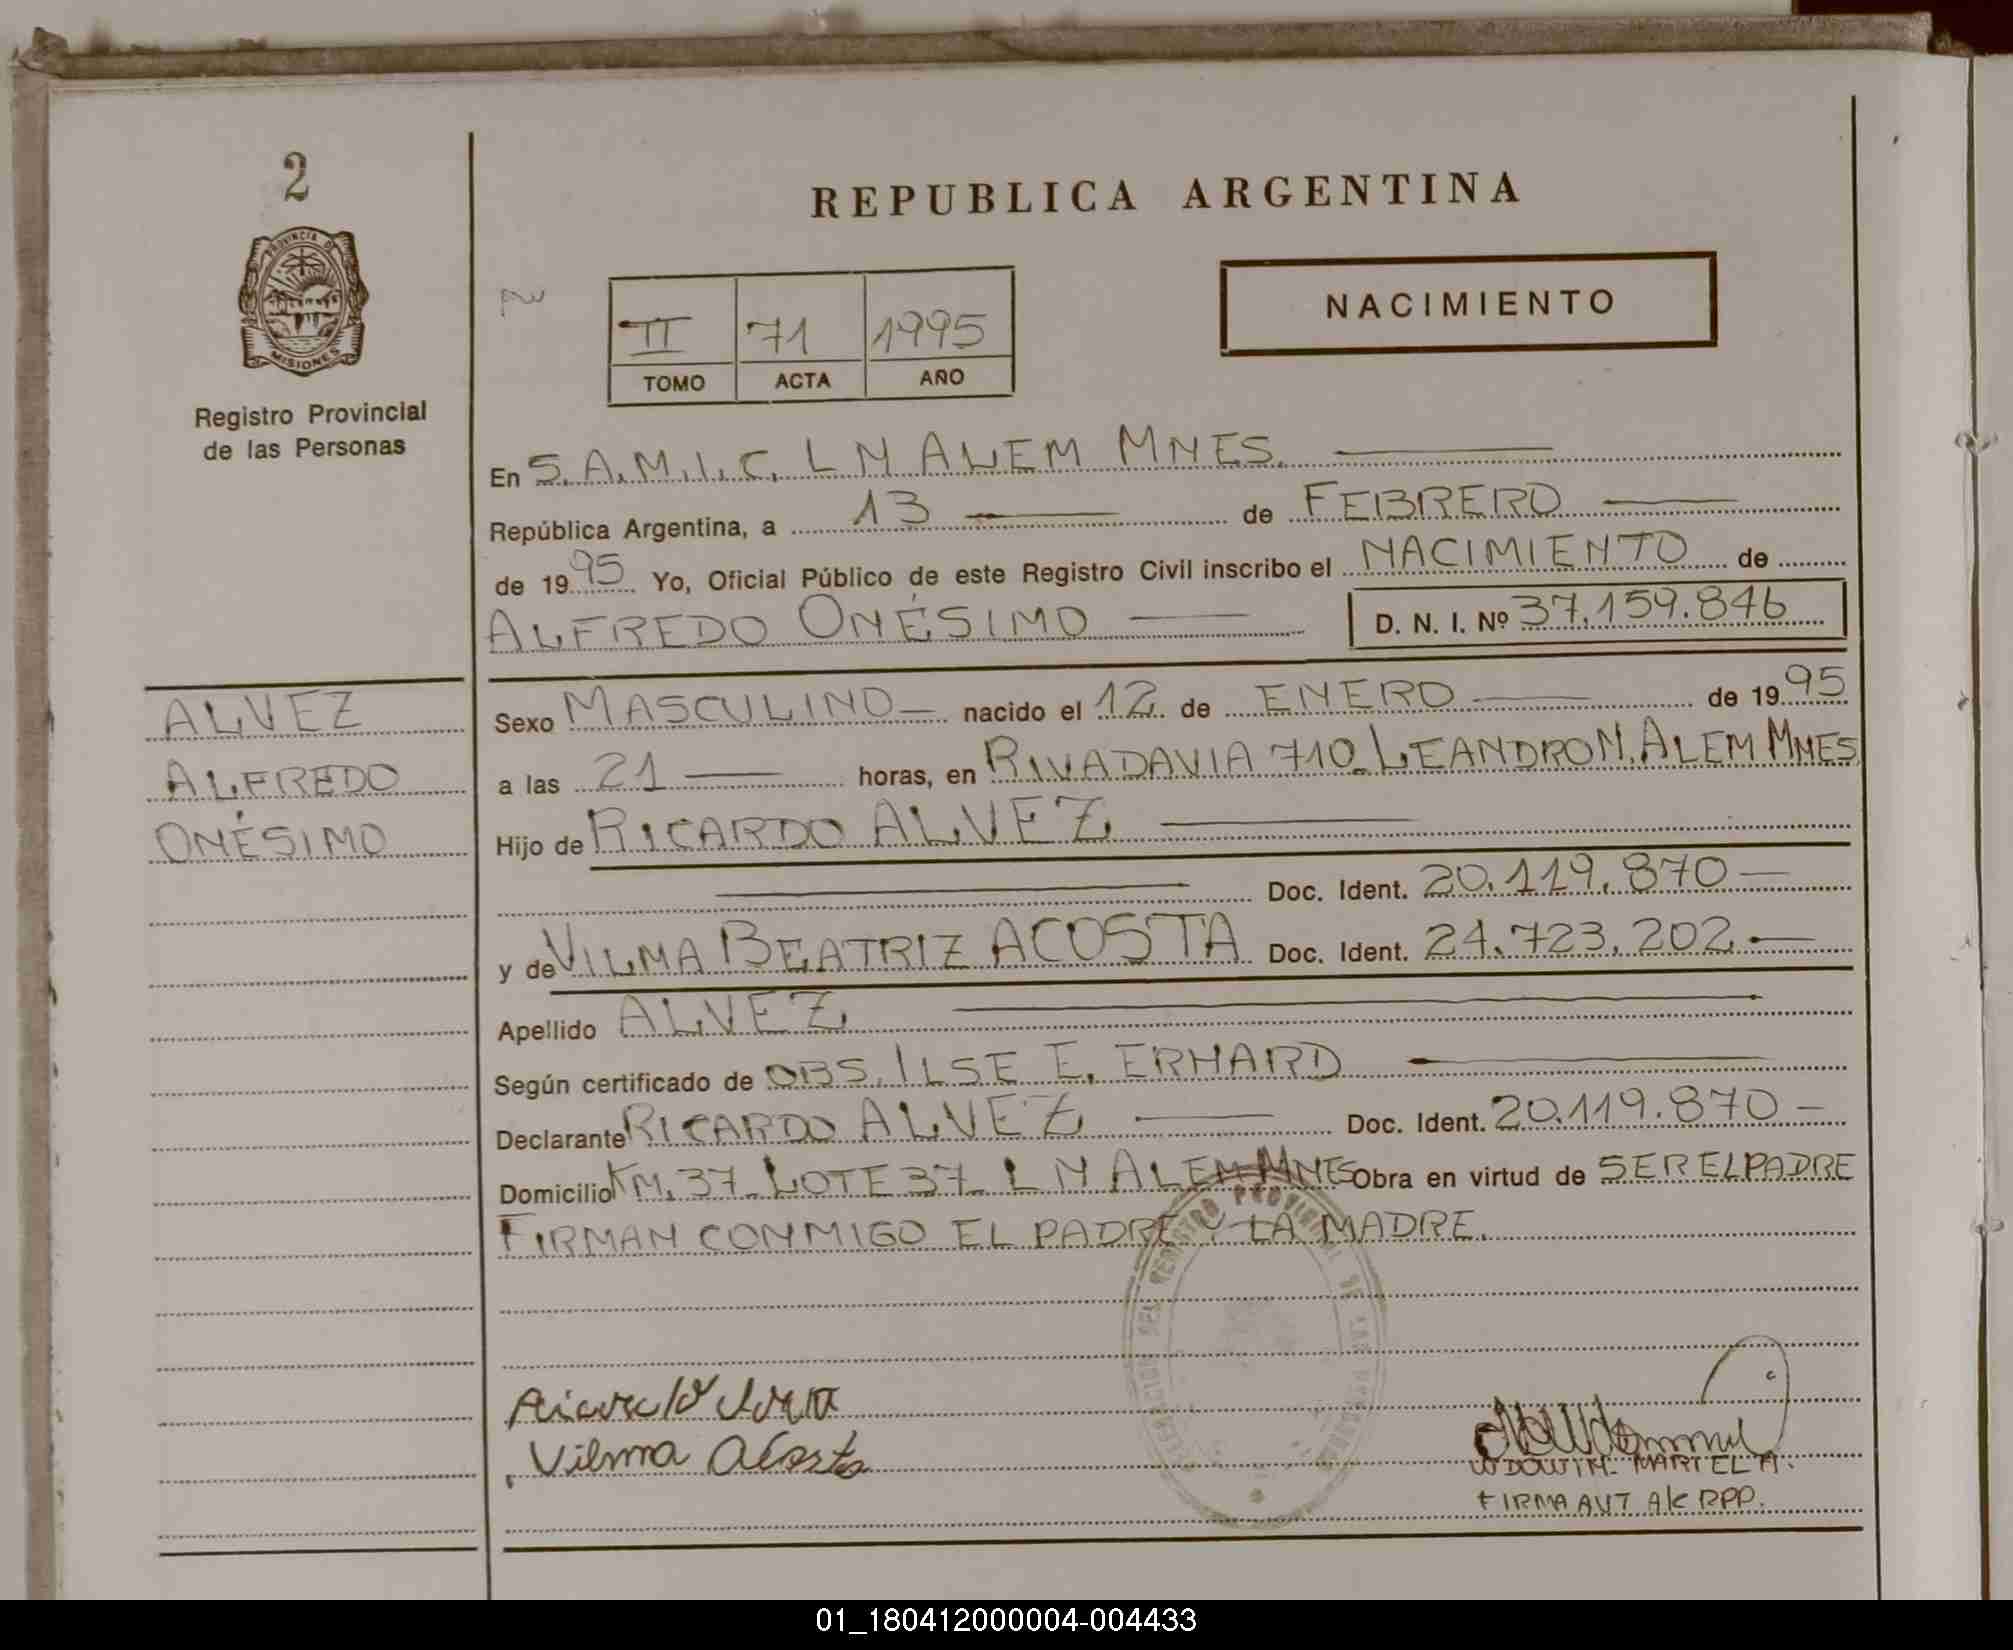 2
PROVINCIA DE
MISIONES
Registro Provincial
de las Personas
REPUBLICA ARGENTINA
2
II 71 1995
TOMO ACTA AÑO
NACIMIENTO
En S.A.M.I.C. L N ALEM MNES.
República Argentina, a 13 de FEBRERO
de 1995 Yo, Oficial Público de este Registro Civil inscribo el NACIMIENTO de
ALFREDO ONÉSIMO D. N. I. Nº 37.159.846
ALVEZ
ALFREDO
ONÉSIMO
Sexo MASCULINO nacido el 12 de ENERO de 1995
a las 21 horas, en RIVADAVIA 710 LEANDRO N. ALEM MNES
Hijo de RICARDO ALVEZ
Doc. Ident. 20.119.870
y de VILMA BEATRIZ ACOSTA Doc. Ident. 24.723.202
Apellido ALVEZ
Según certificado de OBS. ILSE E. ERHARD
Declarante RICARDO ALVEZ Doc. Ident. 20.119.870
Domicilio KM. 37 LOTE 37 L N ALEM MNES Obra en virtud de SER EL PADRE
FIRMAN CONMIGO EL PADRE Y LA MADRE.
DELEGACION DEL REGISTRO PROVINCIAL DE LAS PERSONAS
Vilma Acosta
FIRMA AUT A/C RPP.
01_180412000004-004433